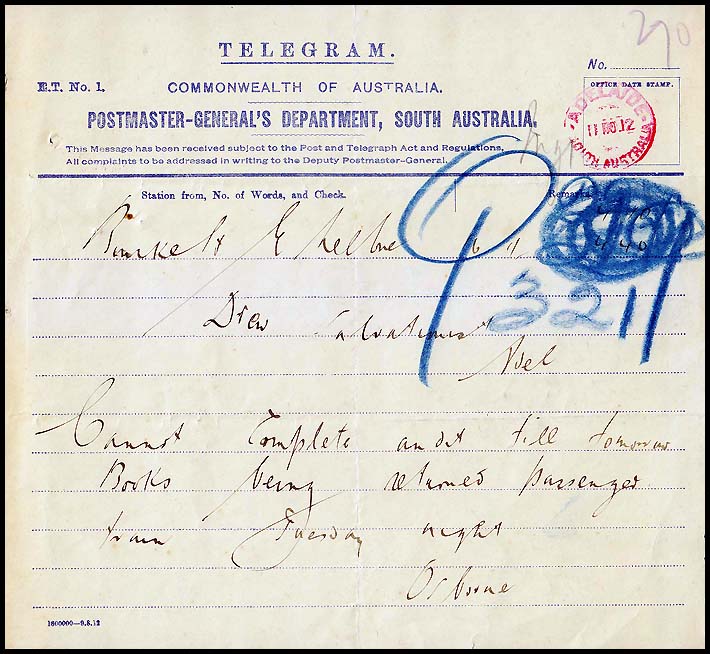 290
TELEGRAM.
No.
E.T. No. 1.
COMMONWEALTH OF AUSTRALIA.
OFFICE DATE STAMP.
POSTMASTER-GENERAL'S DEPARTMENT, SOUTH AUSTRALIA.
ADELAIDE
11 NO 12
SOUTH AUSTRALIA
This Message has been received subject to the Post and Telegraph Act and Regulations.
All complaints to be addressed in writing to the Deputy Postmaster-General.
Station from, No. of Words, and Check.
Remarks
Burke St E Melbne 16
4 40
3211
Drew Salvationist
Adel
Cannot complete audit till tomorrow
Books being returned passenger
train Tuesday night
Osborne
1600000—9.8.12